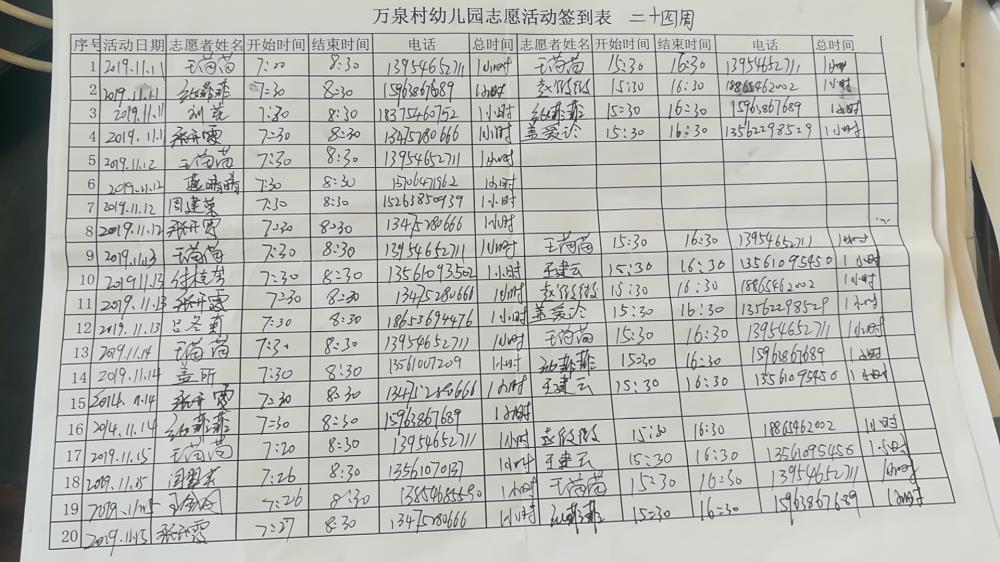 万泉村幼儿园志愿活动签到表 二十四周
序号 活动日期 志愿者姓名 开始时间 结束时间 电话 总时间 志愿者姓名 开始时间 结束时间 电话 总时间
1 2019.11.11 王苗苗 7:30 8:30 13954652711 1小时 王苗苗 15:30 16:30 13954652711 1小时
2 2019.11.11 7:30 8:30 15963867689 1小时 15:30 16:30 18865462002 1小时
3 2019.11.11 刘莹 7:30 8:30 18375460752 1小时 15:30 16:30 15963867689 1小时
4 2019.11.11 张开霞 7:30 8:30 13475280666 1小时 15:30 16:30 13562298529 1小时
5 2019.11.12 王苗苗 7:30 8:30 13954652711 1小时
6 2019.11.12 7:30 8:30 13706471962 1小时
7 2019.11.12 周建荣 7:30 8:30 15263850939 1小时
8 2019.11.12 张开霞 7:30 8:30 13475280666 1小时
9 2019.11.13 王苗苗 7:30 8:30 13954652711 1小时 王苗苗 15:30 16:30 13954652711 1小时
10 2019.11.13 7:30 8:30 13561093502 1小时 王建云 15:30 16:30 13561095450 1小时
11 2019.11.13 张开霞 7:30 8:30 13475280666 1小时 15:30 16:30 18865462002 1小时
12 2019.11.13 吕冬菊 7:30 8:30 18653694476 1小时 15:30 16:30 13562298529 1小时
13 2019.11.14 王苗苗 7:30 8:30 13954652711 1小时 王苗苗 15:30 16:30 13954652711 1小时
14 2019.11.14 盖昕 7:30 8:30 13561007209 1小时 15:30 16:30 15963867689 1小时
15 张开霞 7:30 8:30 13475280666 1小时 王建云 15:30 16:30 13561095450 1小时
16 2014.11.14 7:30 8:30 15963867689 1小时
17 2019.11.15 王苗苗 7:20 8:30 13954652711 1小时 15:30 16:30 18865462002 1小时
18 2019.11.15 7:26 8:30 1小时 王建云 15:30 16:30 13561095450 1小时
19 2019.11.15 7:26 8:30 1小时 王苗苗 15:30 16:30 13954652711 1小时
20 2019.11.15 张开霞 7:27 8:30 13475280666 1小时 15:30 16:30 15963867689 1小时